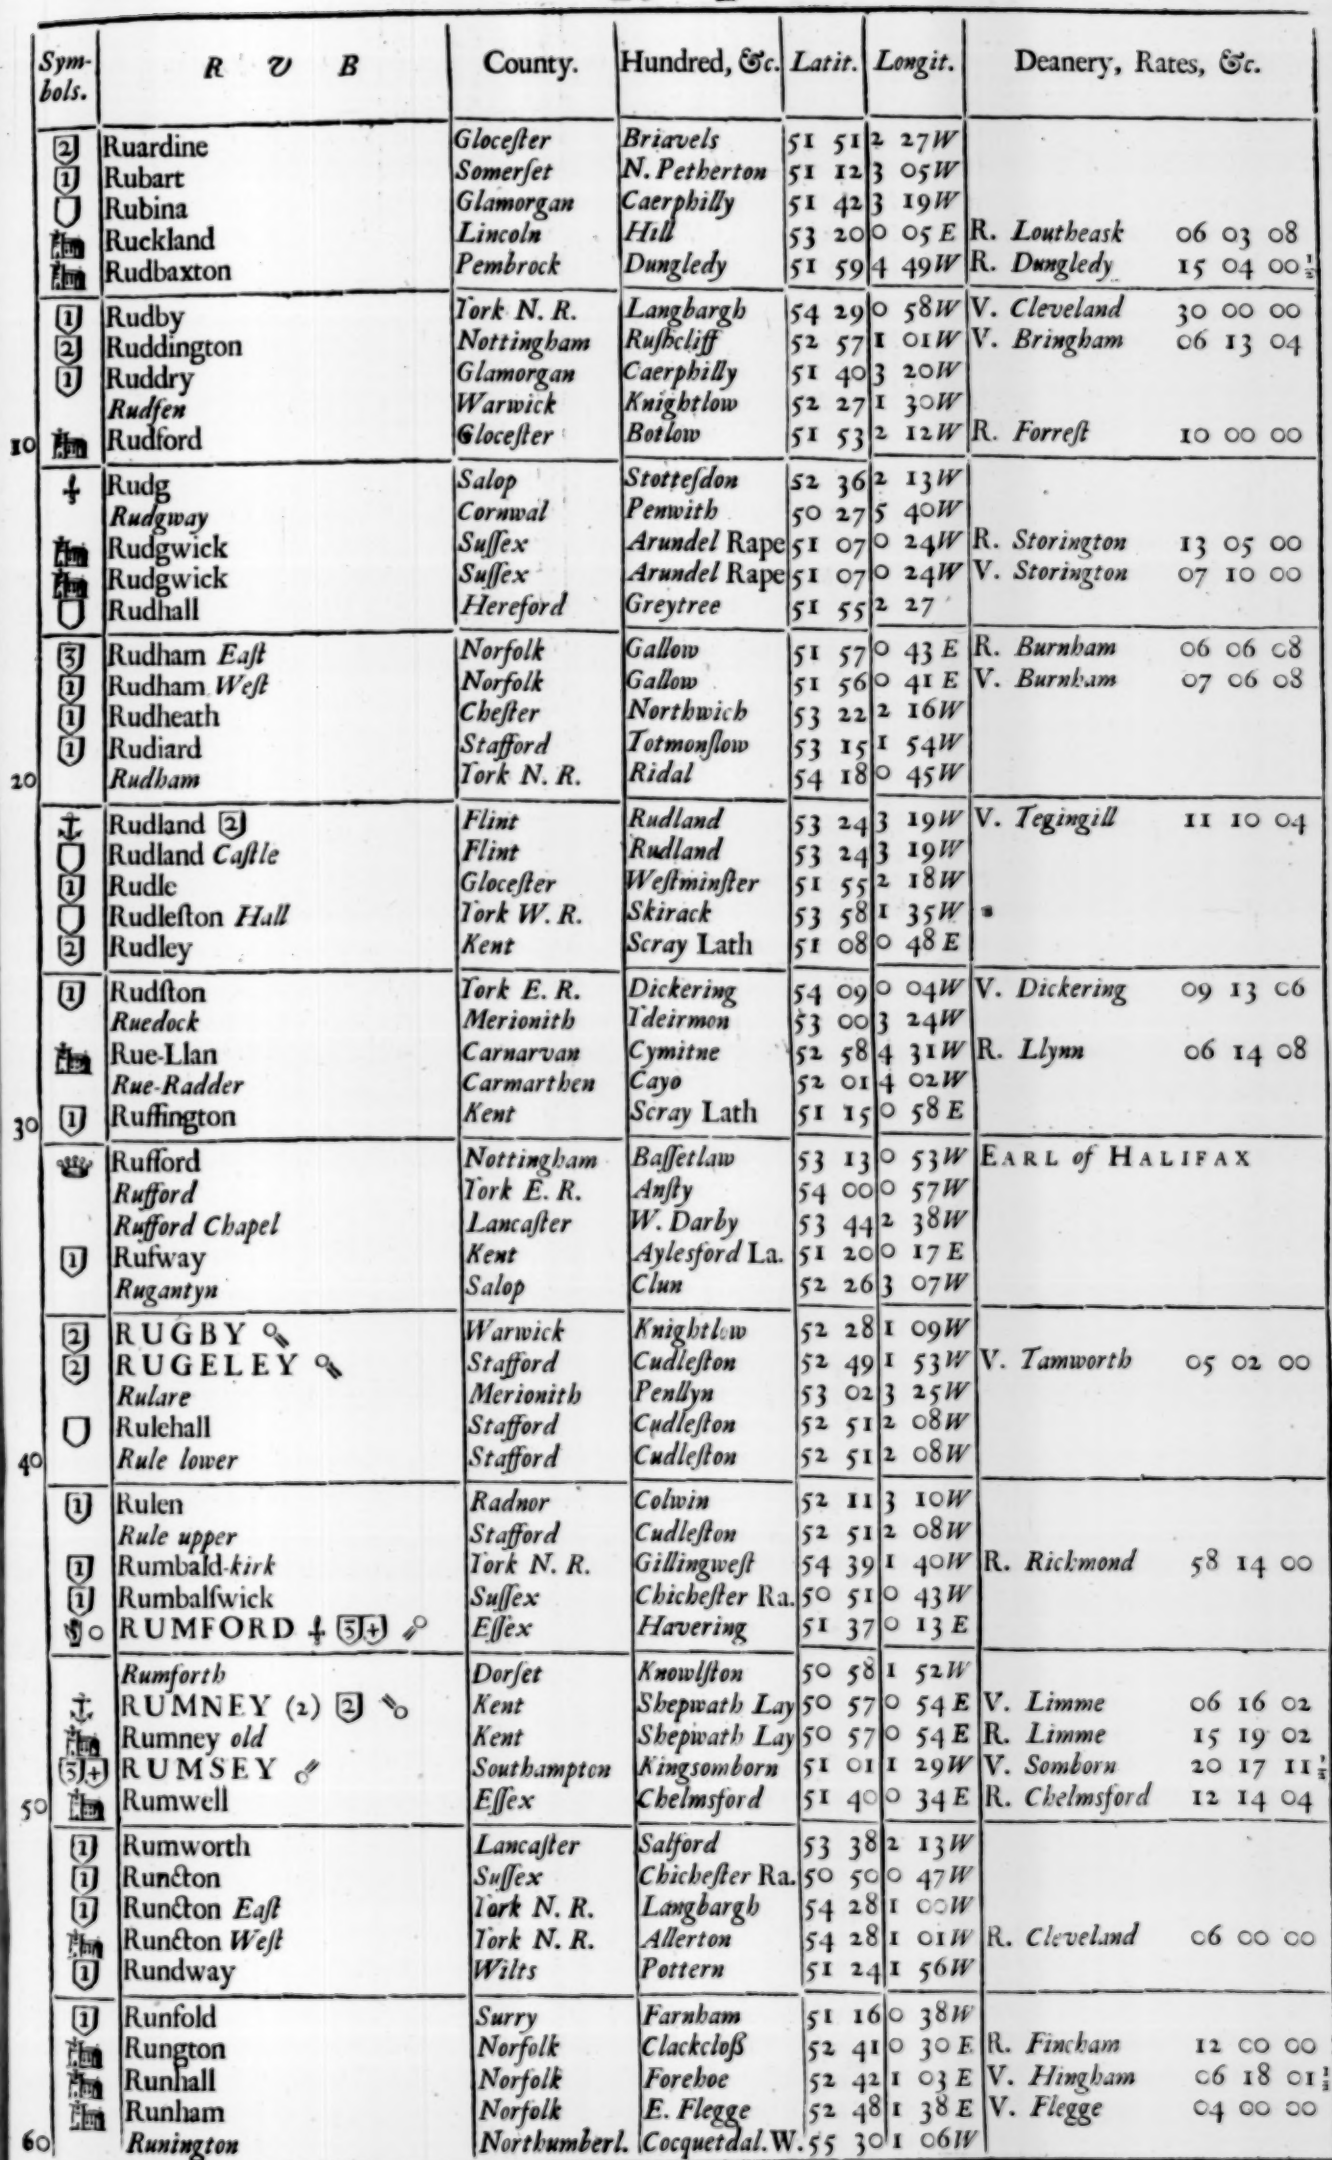 Sym-bols. R U B County. Hundred, &c. Latit. Longit. Deanery, Rates, &c.
2 Ruardine Gloceſter Briavels 51 51 2 27 W
1 Rubart Somerſet N. Petherton 51 12 3 05 W
Rubina Glamorgan Caerphilly 51 42 3 19 W
Ruckland Lincoln Hill 53 20 0 05 E R. Loutheask 06 03 08
Rudbaxton Pembrock Dungledy 51 59 4 49 W R. Dungledy 15 04 00 ½
1 Rudby York N. R. Langbargh 54 29 0 58 W V. Cleveland 30 00 00
2 Ruddington Nottingham Ruſhcliff 52 57 1 01 W V. Bringham 06 13 04
1 Ruddry Glamorgan Caerphilly 51 40 3 20 W
Rudſen Warwick Knightlow 52 27 1 30 W
10 Rudford Gloceſter Botlow 51 53 2 12 W R. Forreſt 10 00 00
Rudg Salop Stotteſdon 52 36 2 13 W
Rudgway Cornwal Penwith 50 27 5 40 W
Rudgwick Suſſex Arundel Rape 51 07 0 24 W R. Storington 13 05 00
Rudgwick Suſſex Arundel Rape 51 07 0 24 W V. Storington 07 10 00
Rudhall Hereford Greytree 51 55 2 27
3 Rudham Eaſt Norfolk Gallow 51 57 0 43 E R. Burnham 06 06 08
1 Rudham Weſt Norfolk Gallow 51 56 0 41 E V. Burnham 07 06 08
1 Rudheath Cheſter Northwich 53 22 2 16 W
1 Rudiard Stafford Totmonſlow 53 15 1 54 W
20 Rudham York N. R. Ridal 54 18 0 45 W
Rudland 2 Flint Rudland 53 24 3 19 W V. Tegingill 11 10 04
Rudland Caſtle Flint Rudland 53 24 3 19 W
1 Rudle Gloceſter Weſtminſter 51 55 2 18 W
Rudleſton Hall York W. R. Skirack 53 58 1 35 W
2 Rudley Kent Scray Lath 51 08 0 48 E
1 Rudſton York E. R. Dickering 54 09 0 04 W V. Dickering 09 13 06
Ruedock Merionith Ydeirmon 53 00 3 24 W
Rue-Llan Carnarvan Cymitne 52 58 4 31 W R. Llynn 06 14 08
Rue-Radder Carmarthen Cayo 52 01 4 02 W
30 1 Ruffington Kent Scray Lath 51 15 0 58 E
Rufford Nottingham Baſſetlaw 53 13 0 53 W EARL of HALIFAX
Rufford York E. R. Anſty 54 00 0 57 W
Rufford Chapel Lancaſter W. Darby 53 44 2 38 W
1 Rufway Kent Aylesford La. 51 20 0 17 E
Rugantyn Salop Clun 52 26 3 07 W
2 RUGBY Warwick Knightlow 52 28 1 09 W
2 RUGELEY Stafford Cudleſton 52 49 1 53 W V. Tamworth 05 02 00
Rulare Merionith Penllyn 53 02 3 25 W
Rulehall Stafford Cudleſton 52 51 2 08 W
40 Rule lower Stafford Cudleſton 52 51 2 08 W
1 Rulen Radnor Colwin 52 11 3 10 W
Rule upper Stafford Cudleſton 52 51 2 08 W
1 Rumbald-kirk York N. R. Gillingweſt 54 39 1 40 W R. Richmond 58 14 00
1 Rumbalſwick Suſſex Chicheſter Ra. 50 51 0 43 W
RUMFORD 3 + Eſſex Havering 51 37 0 13 E
Rumforth Dorſet Knowlſton 50 58 1 52 W
RUMNEY (2) 2 Kent Shepwath Lay 50 57 0 54 E V. Limme 06 16 02
Rumney old Kent Shepwath Lay 50 57 0 54 E R. Limme 15 19 02
3 + RUMSEY Southampton Kingsomborn 51 01 1 29 W V. Somborn 20 17 11 ½
50 Rumwell Eſſex Chelmsford 51 40 0 34 E R. Chelmsford 12 14 04
1 Rumworth Lancaſter Salford 53 38 2 13 W
1 Runcton Suſſex Chicheſter Ra. 50 50 0 47 W
1 Runcton Eaſt York N. R. Langbargh 54 28 1 00 W
Runcton Weſt York N. R. Allerton 54 28 1 01 W R. Cleveland 06 00 00
1 Rundway Wilts Pottern 51 24 1 56 W
1 Runfold Surry Farnham 51 16 0 38 W
Rungton Norfolk Clackcloß 52 41 0 30 E R. Fincham 12 00 00
Runhall Norfolk Forehoe 52 42 1 03 E V. Hingham 06 18 01 ½
Runham Norfolk E. Flegge 52 48 1 38 E V. Flegge 04 00 00
60 Runington Northumberl. Cocquetdal. W. 55 30 1 06 W